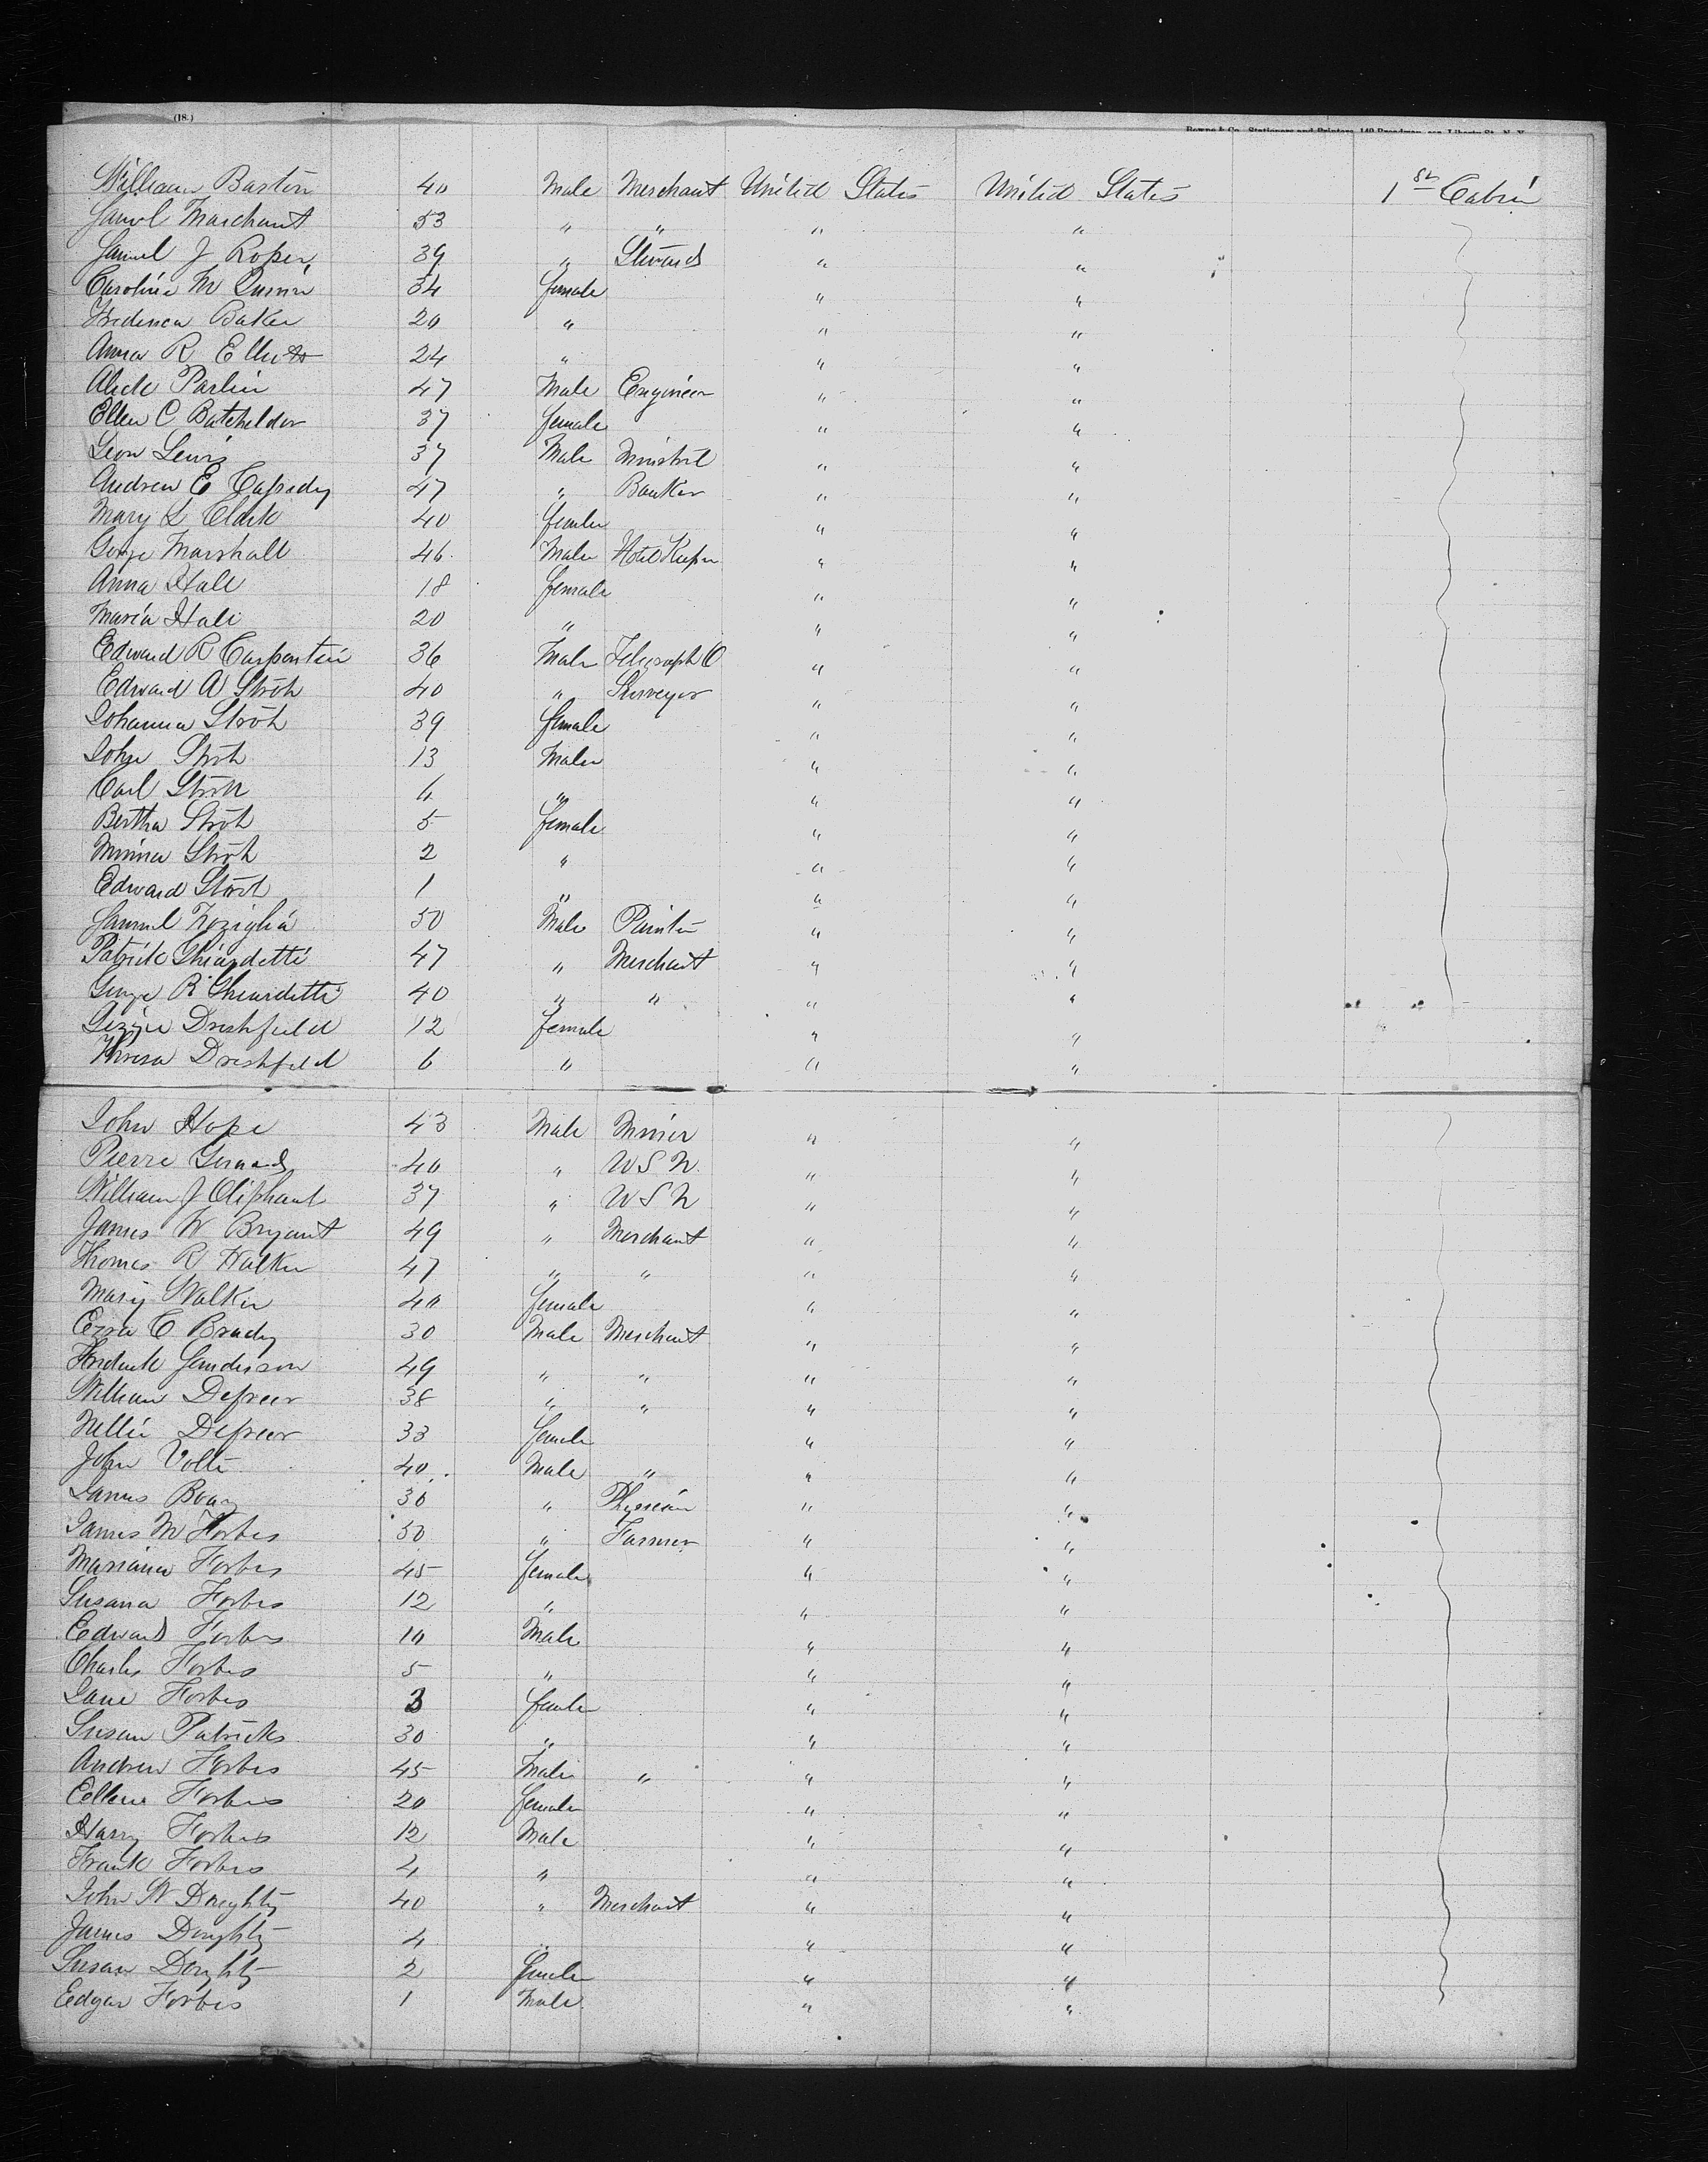 (18.)
Bowne & Co., Stationers and Printers, 149 Broadway, cor. Liberty St., N. Y.
William Barton 40 Male Merchant United States United States 1st Cabin
Saml Marchant 53 " " " "
Samuel J Roper 39 " Steward " "
Caroline M 34 female " "
Frederica Baker 20 " " "
Anna R 24 " " "
Alick Parlin 47 Male Engineer " "
Ellen C Batchelder 37 female " "
Leon Lewis 37 Male Minstrel " "
Andrew E Cassidy 47 " Banker " "
Mary L Clark 40 female " "
George Marshall 46 Male Hotel Keeper " "
Anna Hall 18 female " "
Maria Hall 20 " " "
Edward R Carpenter 36 Male Telegraph O " "
Edward A Ströh 40 " Surveyor " "
Johanna Ströh 39 female " "
John Ströh 13 Male " "
Carl Ströh 6 " " "
Bertha Ströh 5 female " "
Minna Ströh 2 " " "
Edward Ströh 1 " " "
Samuel 50 Male Painter " "
Patrick 47 " Merchant " "
George R 40 " " " "
Lizzie Drishfield 12 female " "
Theresa Drishfield 6 " " "
John Hope 43 Male Miner " "
Pierre 40 " U S N " "
William J Oliphant 37 " U S N " "
James W Bryant 49 " Merchant " "
Thomas R Walker 47 " " " "
Mary Walker 40 female " "
Ezra C Brady 30 Male Merchant " "
Fredrick Sanderson 49 " " " "
William Defreer 38 " " " "
Nellie Defreer 33 female " "
John Volti 40 Male " " "
James 30 " Physician " "
James M Forbes 50 " Farmer " "
Mariana Forbes 45 female " "
Susana Forbes 12 " " "
Edward Forbes 10 Male " "
Charles Forbes 5 " " "
Jane Forbes 3 female " "
Susan Patricks 30 " " "
Andrew Forbes 45 Male " " "
Ellen Forbes 20 female " "
Harry Forbes 12 Male " "
Frank Forbes 4 " " "
John W Doughty 40 " Merchant " "
James Doughty 4 " " "
Susan Doughty 2 female " "
Edgar Forbes 1 Male " "